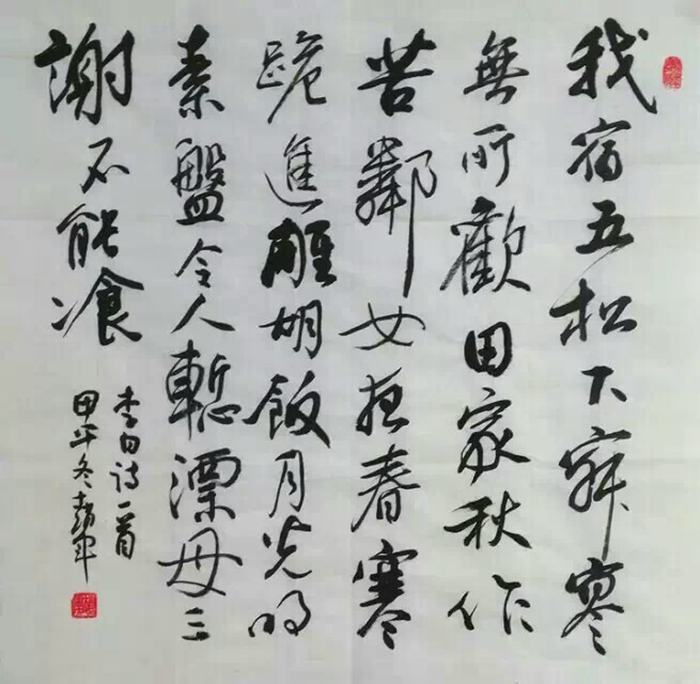 我宿五松下寂寥
無所歡田家秋作
苦鄰女夜春寒
跪進雕胡飯月光明
素盤令人慙漂母三
謝不能飡
李白詩一首
甲午冬